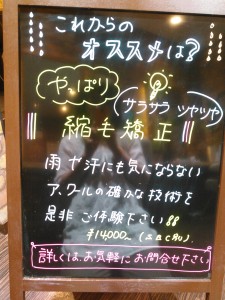 これからの
オススメは?
やっぱり
サラサラ ツヤツヤ
縮毛矯正
雨や汗にも気にならない
ア.クールの確かな技術を
是非 ご体験下さい!!
¥14,000~
詳しくは、お気軽にお問合せ下さい